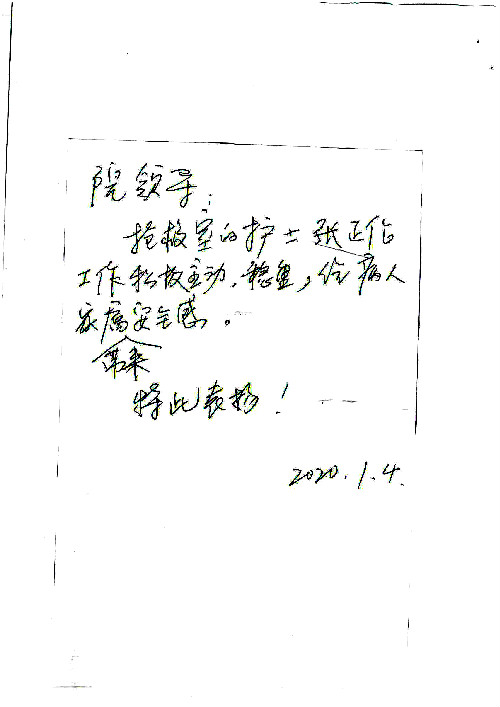 院领导:
抢救室的护士张正作
工作积极主动,稳重,给病人
家属安全感。
带来
特此表扬!
2020.1.4.